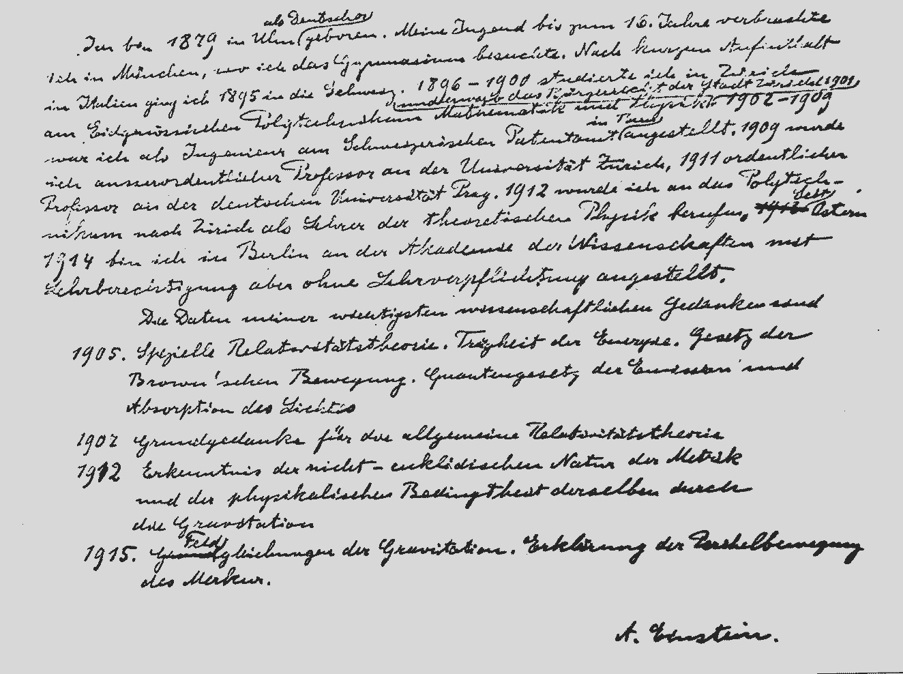 als Deutscher
Ich bin 1879 in Ulm geboren. Meine Jugend bis zum 16. Jahre verbrachte
ich in München, wo ich das Gymnasium besuchte. Nach kurzem Aufenthalt
in Italien ging ich 1895 in die Schweiz. 1896 – 1900 studierte ich in Zürich
und erwarb das Bürgerrecht der Stadt Zürich 1901
am Eidgenössischen Polytechnikum Mathematik und Physik 1902 – 1909
in Bern
war ich als Ingenieur am Schweizerischen Patentamt angestellt. 1909 wurde
ich ausserordentlicher Professor an der Universität Zürich, 1911 ordentlicher
Professor an der deutschen Universität Prag. 1912 wurde ich an das Polytech-
nikum nach Zürich als Lehrer der theoretischen Physik berufen. Seit Ostern
1914 bin ich in Berlin an der Akademie der Wissenschaften mit
Lehrberechtigung aber ohne Lehrverpflichtung angestellt.
Die Daten meiner wichtigsten wissenschaftlichen Gedanken sind
1905. Spezielle Relativitätstheorie. Trägheit der Energie. Gesetz der
Brown'schen Bewegung. Quantengesetz der Emission und
Absorption des Lichtes
1907 Grundgedanke für die allgemeine Relativitätstheorie
1912 Erkenntnis der nicht-euklidischen Natur der Metrik
und der physikalischen Bedingtheit derselben durch
die Gravitation
1915. Feldgleichungen der Gravitation. Erklärung der Perihelbewegung
des Merkur.
A. Einstein.